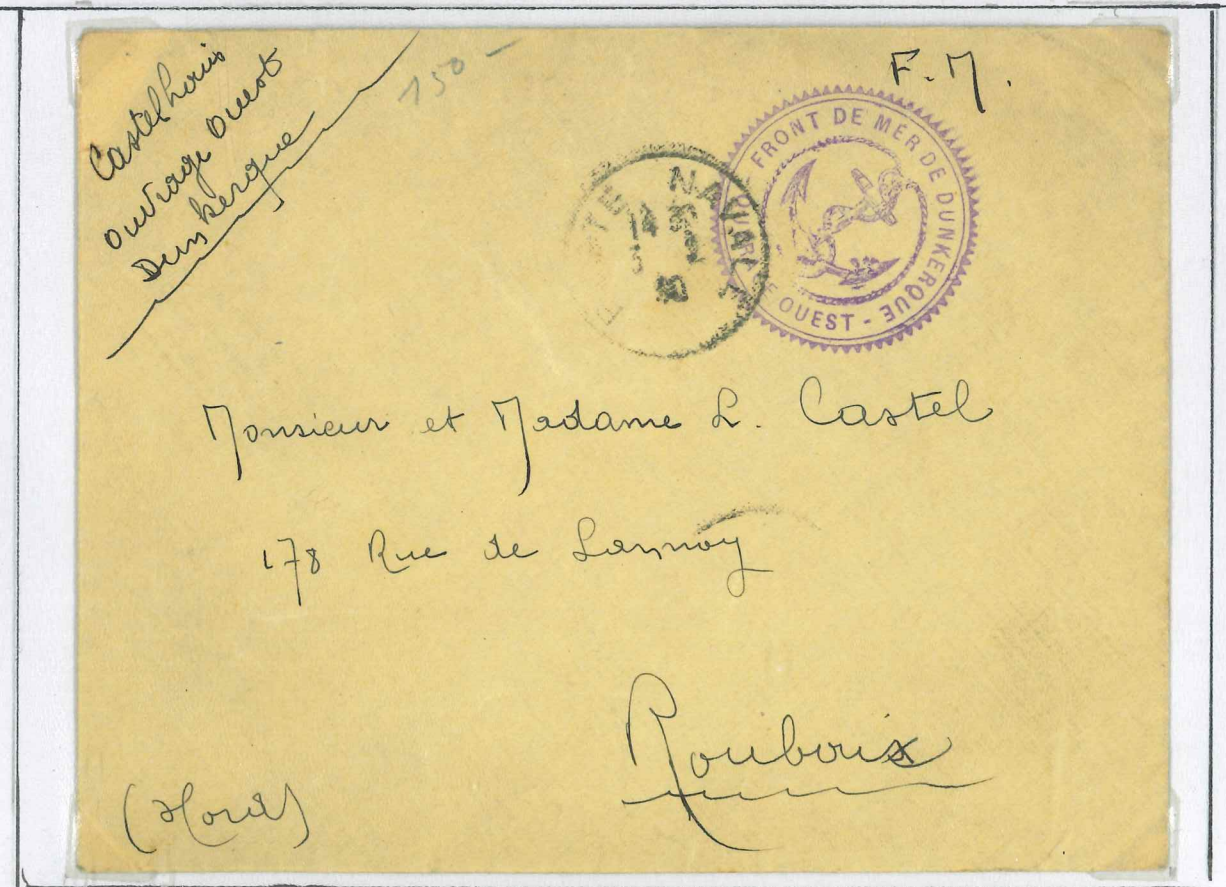 Castel Louis
Ouvrage Ouest
Dun
kerque
150 -
F.M.
NAVALE
14
FRONT DE MER DE DUNKERQUE
OUEST -
Monsieur et Madame L. Castel
178 Rue de Lannoy
Roubaix
(Nord)